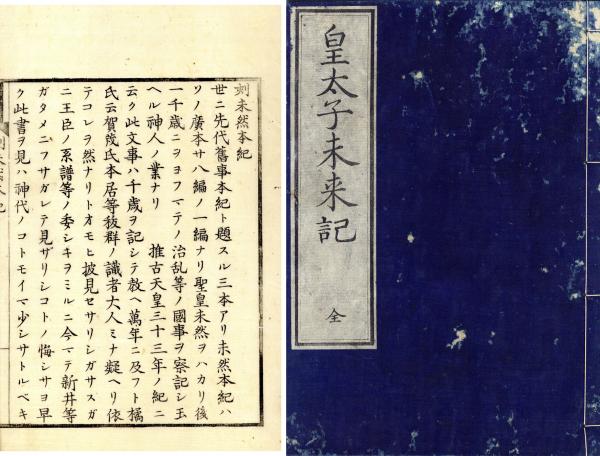 皇太子未来記
全
刻未然本紀
世ニ先代舊事本紀ト題スル三本アリ未然本紀ハ
ソノ廣本サ八編ノ一編ナリ聖皇未然ヲハカリ後
一千歳ニヲヨフマテノ治乱等ノ國事ヲ察記シ玉
ヘル神人ノ業ナリ　推古天皇三十三年ノ紀ニ
云ク此文事ハ千歳ヲ記シテ教ヘ萬年ニ及フト橘
氏云賀茂氏本居等秡群ノ識者大人ミナ疑ヘリ依
テコレヲ然ナリトオモヒ披見セサリシガサスガ
ニ王臣ノ系譜等ノ委シキヲミルニ今マテ新井等
ガタメニフサガレテ見ザリシコトノ悔シサヨ早
ク此書ヲ見ハ神代ノコトモイマ少シサトルベキ